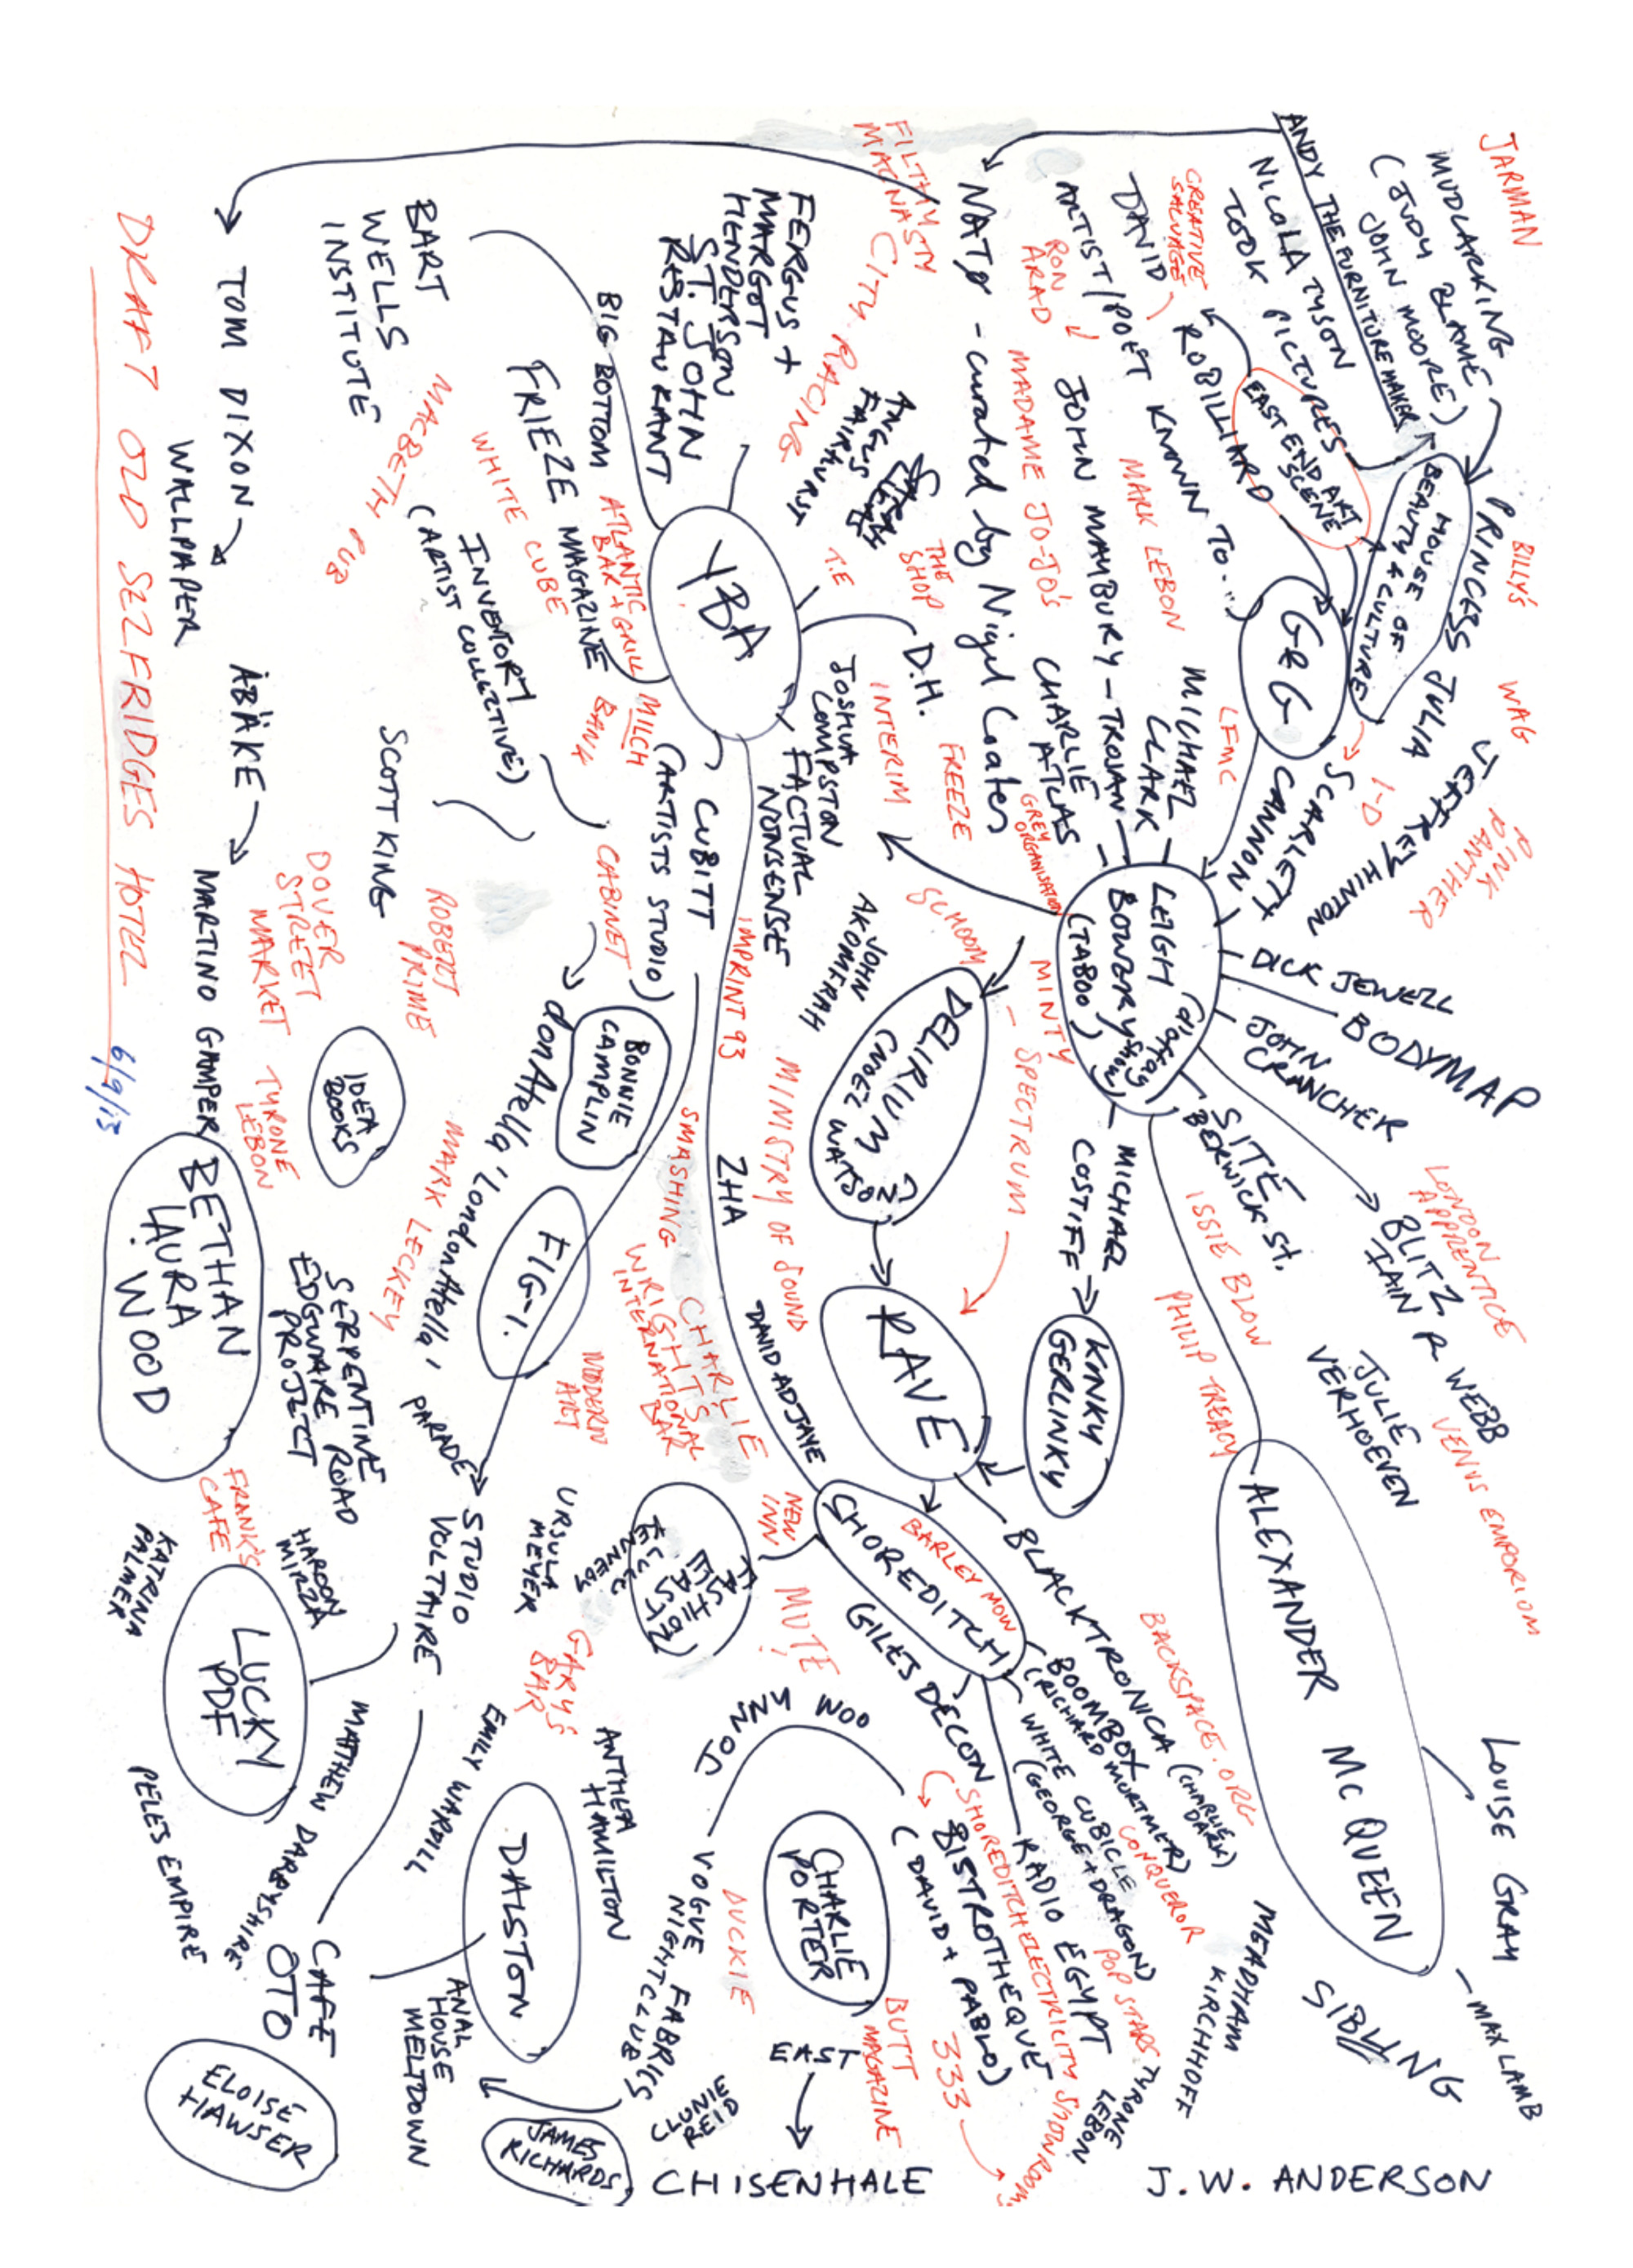 JARMAN
MUDLARKING
(JUDY BLAME
JOHN MOORE)
ANDY THE FURNITURE MAKER
NICOLA TYSON
TOOK PICTURES
EAST END ART
SCENE
HOUSE OF
BEAUTY & CULTURE
BILLY'S
PRINCESS JULIA
WAG
JEFFREY HINTON
PINK
PANTHER
I-D
CREATIVE
SALVAGE
DAVID ROBILLIARD
ARTIST/POET KNOWN TO...
G&G
SCARLETT
CANNON
LFMC
RON
ARAD
MARK LEBON
MICHAEL
CLARK
JOHN MAYBURY - TROJAN
CHARLIE
ATLAS
MADAME JO-JO'S
NATO - curated by Nigel Coates
GREY
ORGANISATION
LEIGH
BOWERY
(TABOO)
(d'offay
show)
DICK JEWELL
BODYMAP
JOHN
CRANCHER
SITE
BERWICK St.
BLITZ
IAN R WEBB
LONDON
APPRENTICE
JULIE
VERHOEVEN
VENUS EMPORIUM
ISSIE BLOW
PHILIP TREACY
ALEXANDER MCQUEEN
LOUISE GRAY
MAX LAMB
SIBLING
MEADHAM
KIRCHHOFF
J.W. ANDERSON
MICHAEL
COSTIFF
KINKY
GERLINKY
MINTY
SPECTRUM
SCHOOM
DELIRIUM
(NOEL WATSON)
RAVE
BLACKTRONICA (CHARLIE DARK)
BACKSPACE.ORG
BOOMBOX
(RICHARD MORTIMER)
CONQUEROR
WHITE CUBICLE
(GEORGE + DRAGON)
POP STARS
TYRONE
LEBON
RADIO EGYPT
SHOREDITCH ELECTRICITY SHOWROOMS
BISTROTHEQUE
(DAVID + PABLO)
333
BARLEY MOW
SHOREDITCH
GILES DECON
FILTHY
MACNASTY
CITY RACING
ANGUS
FAIRHURST
THE
SHOP
T.E
D.H.
INTERIM
FREEZE
JOSHUA
COMPSTON
FACTUAL
NONSENSE
JOHN
AKOMFRAH
FERGUS +
MARGOT
HENDERSON
ST. JOHN
RESTAURANT
YBA
BIG BOTTOM
ATLANTIC
BAR + GRILL
MILCH
BANK
FRIEZE MAGAZINE
WHITE CUBE
BART
WELLS
INSTITUTE
MACBETH PUB
INVENTORY
(ARTIST COLLECTIVE)
CUBITT
(ARTISTS STUDIO)
CABINET
IMPRINT 93
MINISTRY OF SOUND
ZHA
DAVID ADJAYE
SMASHING
CHARLIE
WRIGHTS
INTERNATIONAL
BAR
NEW
INN
MUTE!
FASHION
EAST
(LULU
KENNEDY)
JONNY WOO
CHARLIE
PORTER
BUTT
MAGAZINE
EAST
CHISENHALE
DUCKIE
VOGUE FABRICS
NIGHTCLUB
CLUNIE
REID
JAMES
RICHARDS
BONNIE
CAMPLIN
donAtella
'LondonAtella'
PARADE
FIG-1.
MODERN
ART
URSULA
MEYER
GARY'S
BAR
ANTHEA
HAMILTON
EMILY WARDILL
DALSTON
ANAL
HOUSE
MELTDOWN
STUDIO
VOLTAIRE
SCOTT KING
ROBERT
PRIME
MARK LECKEY
DOVER
STREET
MARKET
IDEA
BOOKS
TYRONE
LEBON
SERPENTINE
EDGWARE ROAD
PROJECT
FRANK'S
CAFE
HAROON
MIRZA
KATRINA
PALMER
LUCKY
PDF
MATTHEW DARBYSHIRE
PELES EMPIRE
CAFE
OTO
ELOISE
HAWSER
TOM DIXON
WALLPAPER
ÅBÄKE
MARTINO GAMPER
BETHAN
LAURA
WOOD
DRAFT OLD SELFRIDGES HOTEL
6/9/13